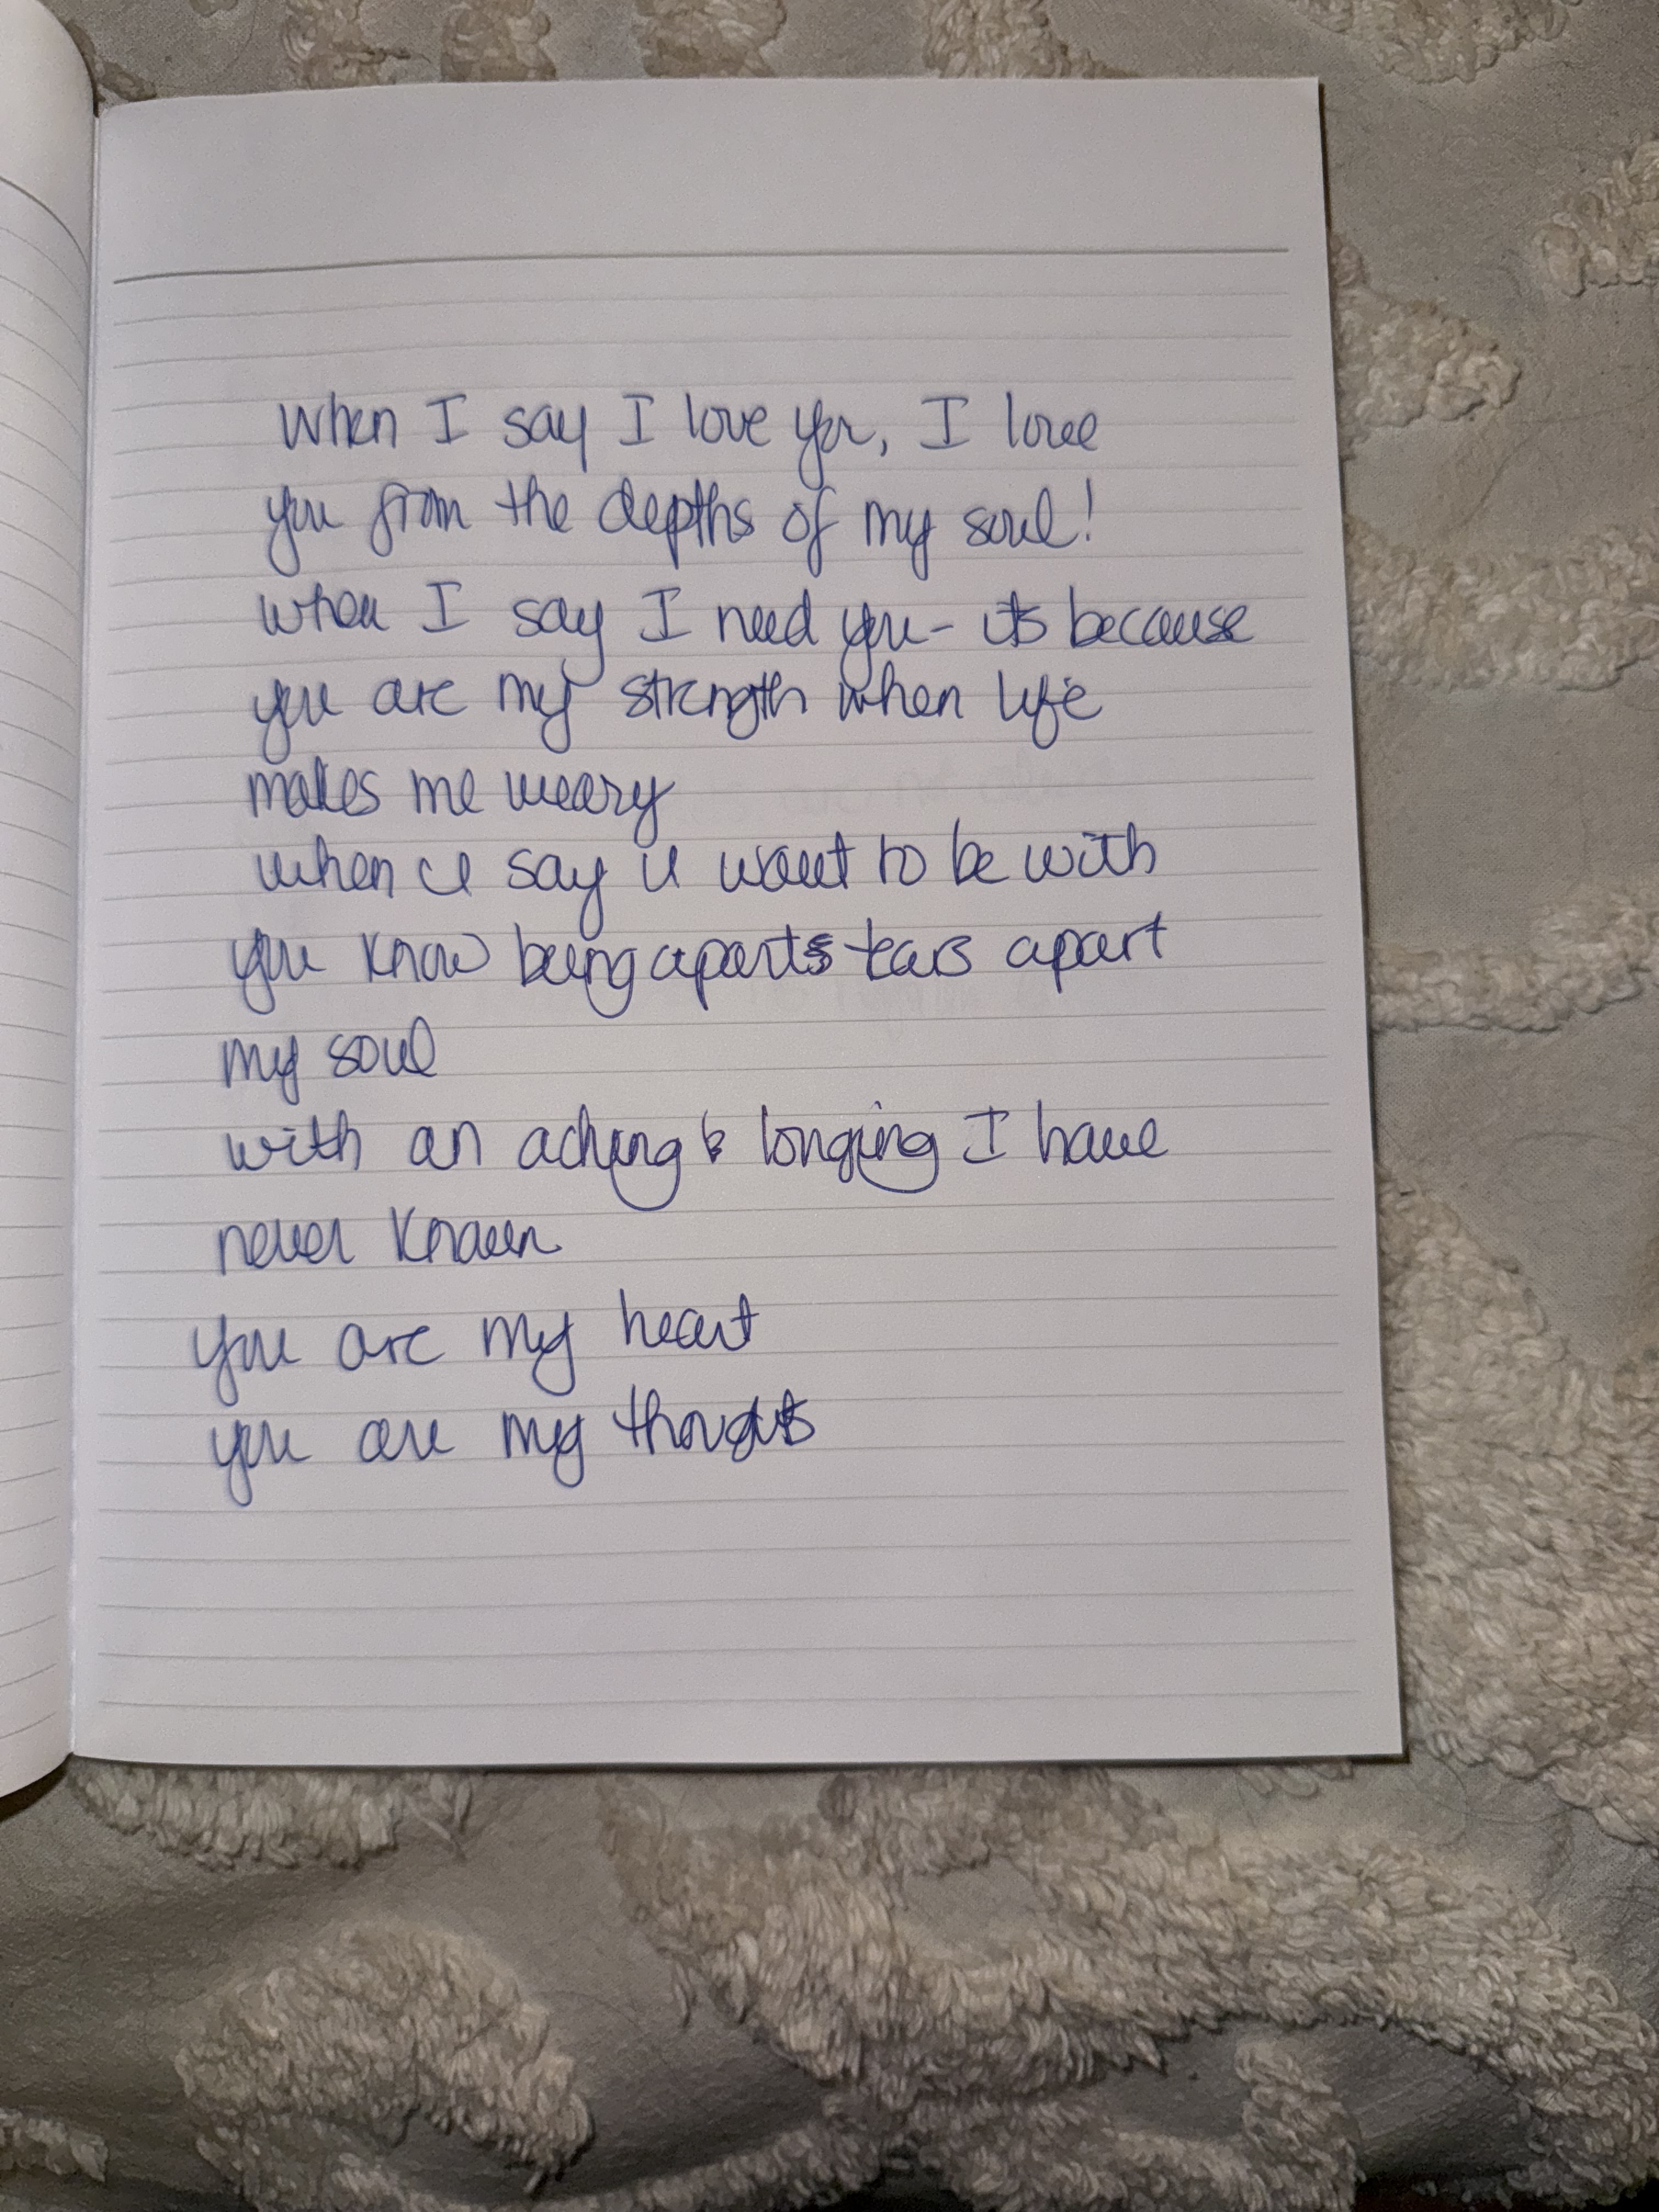 When I say I love you, I love
you from the depths of my soul!
when I say I need you - its because
you are my strength when life
makes me weary
when I say I want to be with
you know being aparts tears apart
my soul
with an aching & longing I have
never known
you are my heart
you are my thoughts